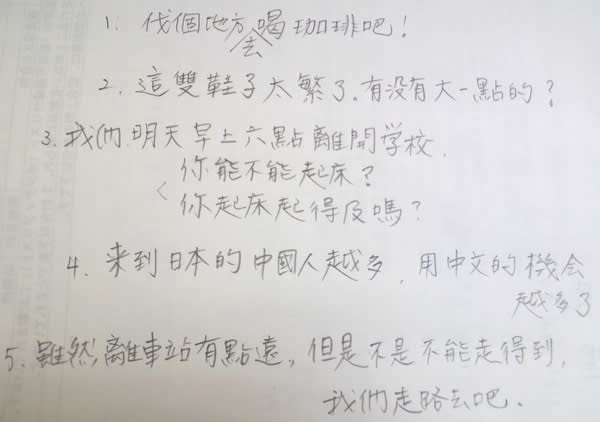 1. 找個地方去喝珈琲吧!
2. 這雙鞋子太繁了.有没有大一點的?
3. 我们明天早上六點離開学校.
你能不能起床?
你起床起得及嗎?
4. 来到日本的中國人越多,用中文的機会
越多了
5. 雖然,離車站有點遠,但是不是不能走得到,
我們走路去吧.